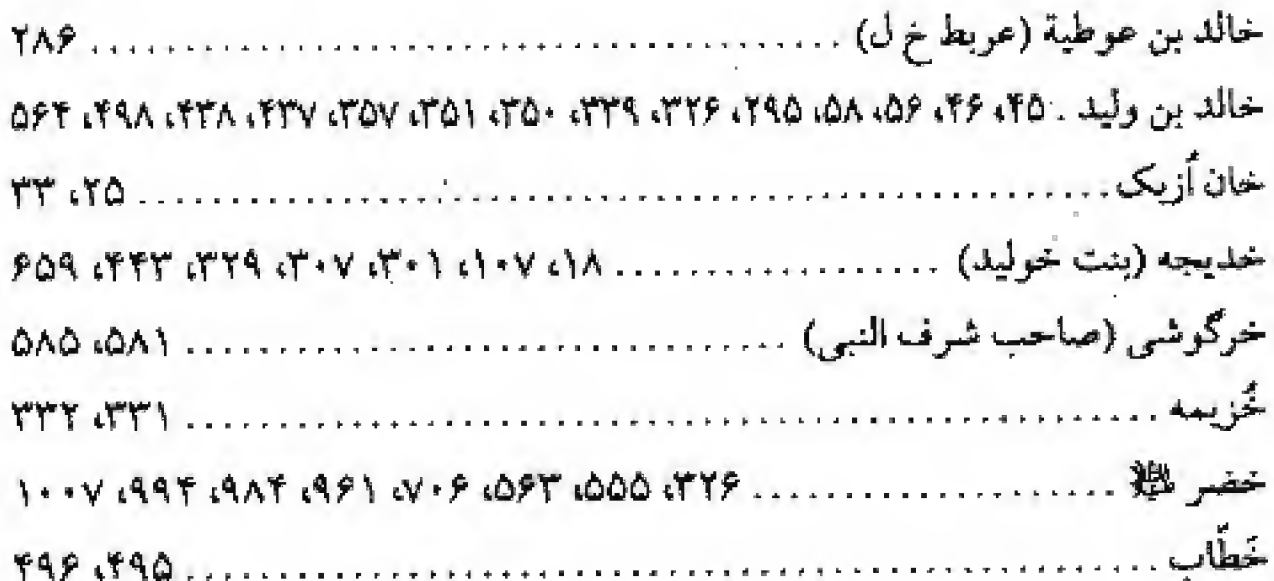 خالد بن عوطية (عربط خ ل) ........................................ ۲۸۶
خالد بن ولید . ۴۵، ۴۶، ۵۶، ۵۸، ۲۹۵، ۳۲۶، ۳۳۹، ۳۵۰، ۳۵۱، ۳۵۷، ۴۳۷، ۴۳۸، ۴۹۸، ۵۶۴
خان اُزبک ........................................ ۲۵، ۳۳
خدیجه (بنت خولید) .................. ۱۸، ۱۰۷، ۳۰۱، ۳۰۷، ۳۲۹، ۴۴۳، ۶۵۹
خرگوشی (صاحب شرف النبی) ................................ ۵۸۱، ۵۸۵
خُزیمه .................................................. ۳۳۱، ۳۳۲
خضر علیه السلام .................... ۳۲۶، ۵۵۵، ۵۶۳، ۷۰۶، ۹۶۱، ۹۸۴، ۹۹۴، ۱۰۰۷
خَطّاب .................................................. ۴۹۵، ۴۹۶